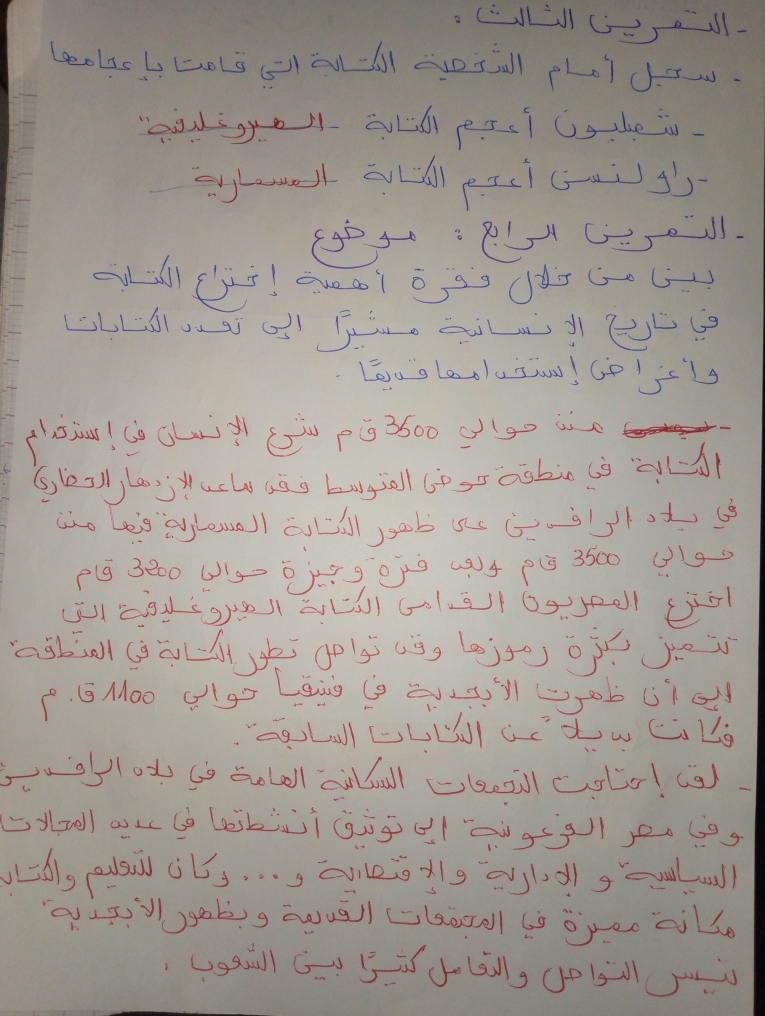 - التمرين الثالث :
- سجل أمام الشخصية الكتابة التي قامت بإعجامها
- شمبليون أعجم الكتابة الهيروغليفية
- راولنسن أعجم الكتابة المسمارية
- التمرين الرابع : موضوع
بين من خلال فقرة أهمية إختراع الكتابة
في تاريخ الإنسانية مشيرًا إلى تعدد الكتابات
وأغراض إستخدامها قديمًا .
- منذ حوالي 3500 ق م شرع الإنسان في إستخدام
الكتابة في منطقة حوض المتوسط فقد ساعد الإزدهار الحضاري
في بلاد الرافدين على ظهور الكتابة المسمارية فيها منذ
حوالي 3500 ق م وبعد فترة وجيزة حوالي 3200 ق م
اخترع المصريون القدامى الكتابة الهيروغليفية التي
تتميز بكثرة رموزها وقد تواصل تطور الكتابة في المنطقة
إلى أن ظهرت الأبجدية في فينيقيا حوالي 1100 ق. م
فكانت بديلا عن الكتابات السابقة .
- لقد إحتاجت التجمعات السكانية الهامة في بلاد الرافدين
وفي مصر الفرعونية إلى توثيق أنشطتها في عديد المجالات
السياسية و الإدارية والإقتصادية و... وكان للتعليم والكتابة
مكانة مميزة في المجتمعات القديمة وبظهور الأبجدية
تيسر التواصل والتعامل كثيرًا بين الشعوب .